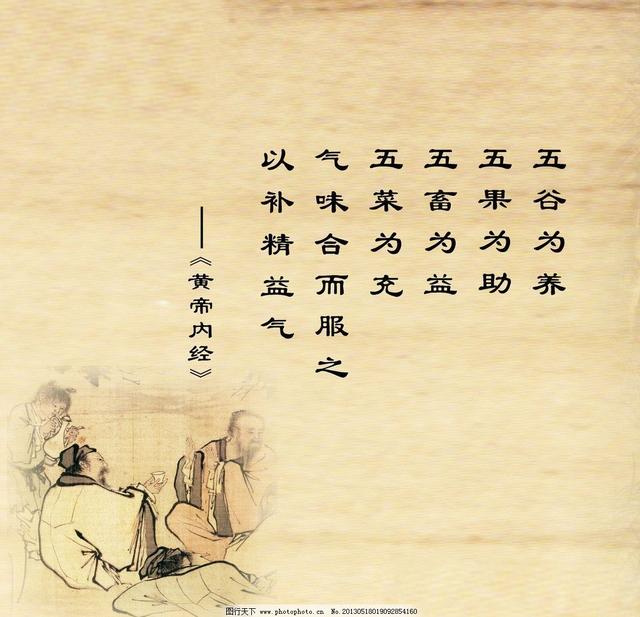 五谷为养
五果为助
五畜为益
五菜为充
气味合而服之
以补精益气
——《黄帝内经》
图行天下 www.photophoto.cn No.20130518019092854160